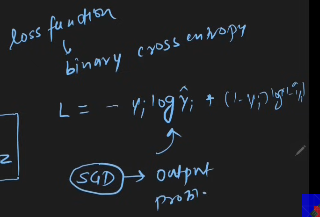 loss function
binary cross entropy
L = - Yi log Ŷi + (1-Yi) log(1-Ŷi)
SGD → output
prob.